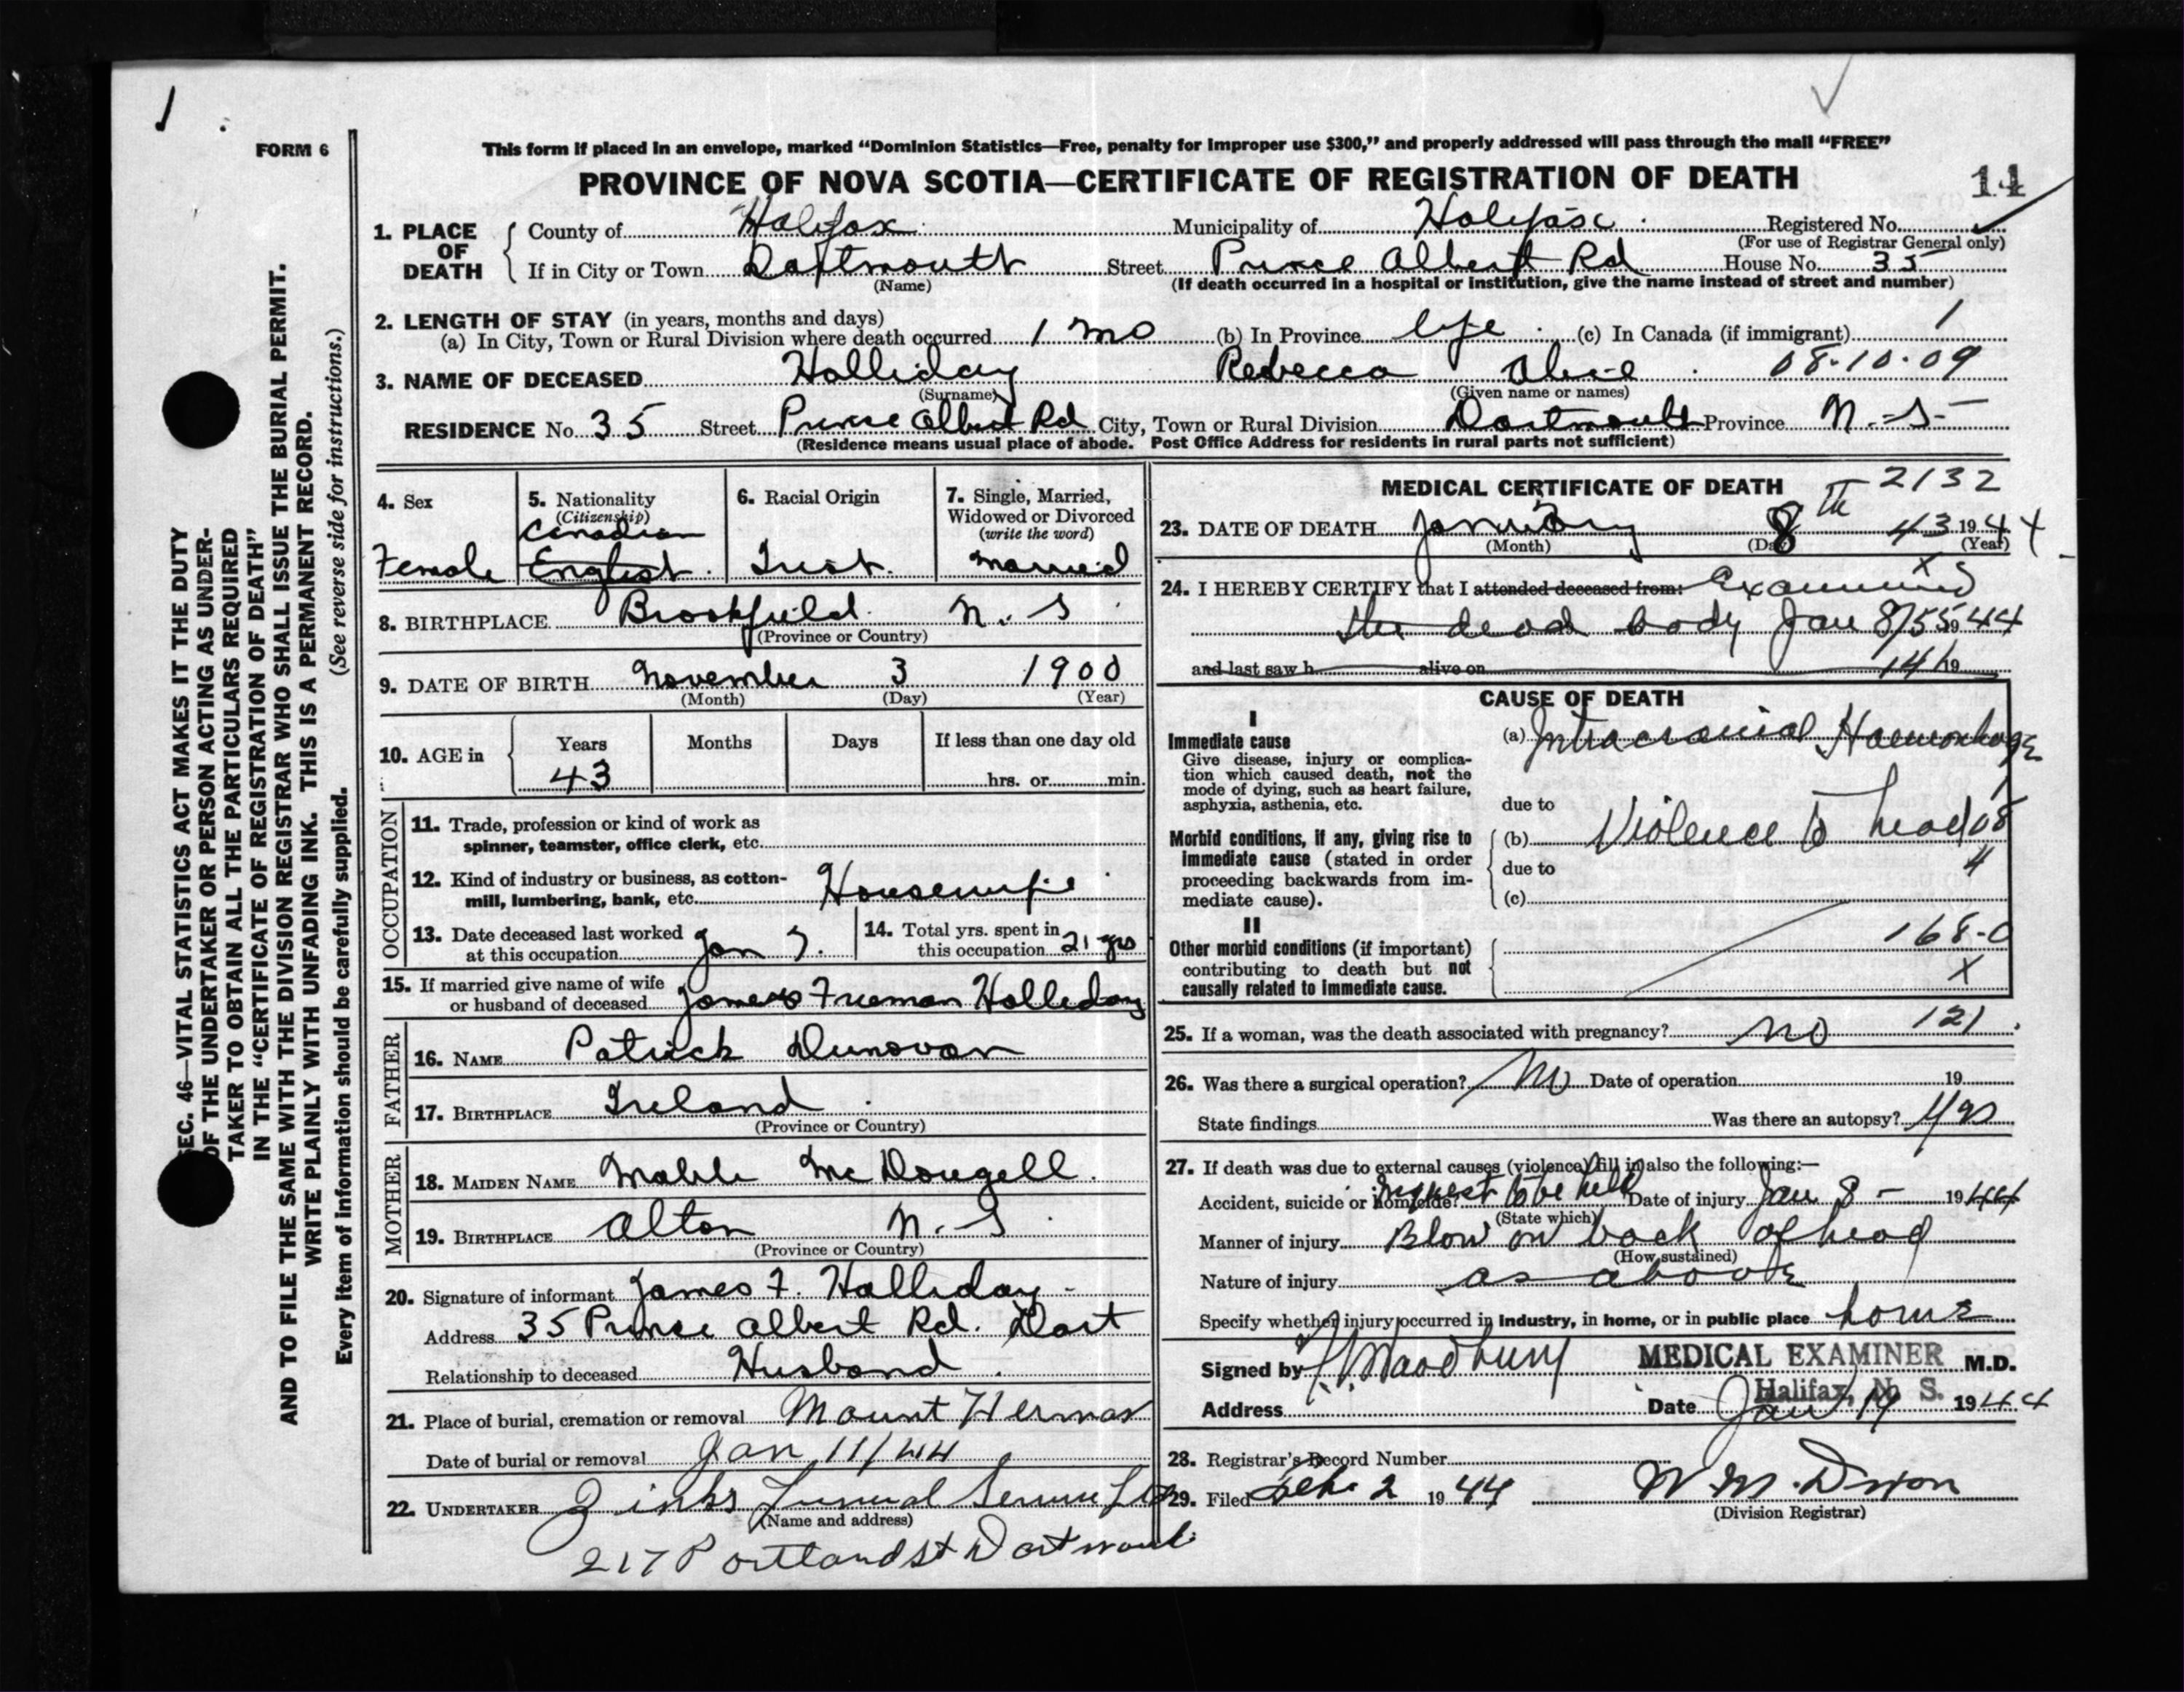 FORM 6
This form if placed in an envelope, marked “Dominion Statistics—Free, penalty for improper use $300,” and properly addressed will pass through the mail “FREE”
PROVINCE OF NOVA SCOTIA—CERTIFICATE OF REGISTRATION OF DEATH
1. PLACE OF DEATH County of Halifax Municipality of Halifax Registered No.
(For use of Registrar General only)
If in City or Town Dartmouth Street Prince Albert Rd House No. 35
(Name) (If death occurred in a hospital or institution, give the name instead of street and number)
2. LENGTH OF STAY (in years, months and days)
(a) In City, Town or Rural Division where death occurred 1 mo (b) In Province life (c) In Canada (if immigrant) 1
3. NAME OF DECEASED Holliday Rebecca Alice 08-10-09
(Surname) (Given name or names)
RESIDENCE No. 35 Street Prince Albert Rd City, Town or Rural Division Dartmouth Province N.S
(Residence means usual place of abode. Post Office Address for residents in rural parts not sufficient)
4. Sex Female
5. Nationality (Citizenship) Canadian English
6. Racial Origin Irish
7. Single, Married, Widowed or Divorced (write the word) Married
8. BIRTHPLACE Brookfield N. S
(Province or Country)
9. DATE OF BIRTH November 3 1900
(Month) (Day) (Year)
10. AGE in Years 43 Months Days If less than one day old hrs. or min.
OCCUPATION
11. Trade, profession or kind of work as
spinner, teamster, office clerk, etc.
12. Kind of industry or business, as cotton-
mill, lumbering, bank, etc. Housewife
13. Date deceased last worked
at this occupation Jan 7.
14. Total yrs. spent in
this occupation 21 yrs
15. If married give name of wife
or husband of deceased James Freeman Holliday
FATHER
16. NAME Patrick Dunovan
17. BIRTHPLACE Ireland
(Province or Country)
MOTHER
18. MAIDEN NAME Mable McDougell
19. BIRTHPLACE Alton N. S
(Province or Country)
20. Signature of informant James F. Holliday
Address 35 Prince Albert Rd. Dart
Relationship to deceased Husband
21. Place of burial, cremation or removal Mount Herman
Date of burial or removal Jan 11/44
22. UNDERTAKER Zinks Funeral Service Ltd
(Name and address)
217 Portland St Dartmouth
MEDICAL CERTIFICATE OF DEATH 2132
23. DATE OF DEATH January 8th 43 1944
(Month) (Day) (Year)
24. I HEREBY CERTIFY that I attended deceased from: Examined
the dead body Jan 8/55 1944
and last saw h alive on 14h 19
CAUSE OF DEATH
I
Immediate cause
Give disease, injury or complica-
tion which caused death, not the
mode of dying, such as heart failure,
asphyxia, asthenia, etc.
(a) Intracranial Haemorrhage
due to
Morbid conditions, if any, giving rise to
immediate cause (stated in order
proceeding backwards from im-
mediate cause).
(b) Violence to head
due to
(c)
II
Other morbid conditions (if important)
contributing to death but not
causally related to immediate cause.
168-0
X
25. If a woman, was the death associated with pregnancy? no 121
26. Was there a surgical operation? No Date of operation 19
State findings Was there an autopsy? Yes
27. If death was due to external causes (violence) fill in also the following:—
Accident, suicide or homicide? Inquest to be held Date of injury Jan 8 - 1944
(State which)
Manner of injury Blow on back of head
(How sustained)
Nature of injury as above
Specify whether injury occurred in industry, in home, or in public place home
Signed by Woodbury MEDICAL EXAMINER M.D.
Halifax, N. S.
Address Date Jan 14 1944
28. Registrar's Record Number
29. Filed Feb. 2 1944 W. M. Dixon
(Division Registrar)
SEC. 46—VITAL STATISTICS ACT MAKES IT THE DUTY
OF THE UNDERTAKER OR PERSON ACTING AS UNDER-
TAKER TO OBTAIN ALL THE PARTICULARS REQUIRED
IN THE “CERTIFICATE OF REGISTRATION OF DEATH”
AND TO FILE THE SAME WITH THE DIVISION REGISTRAR WHO SHALL ISSUE THE BURIAL PERMIT.
WRITE PLAINLY WITH UNFADING INK. THIS IS A PERMANENT RECORD.
Every item of information should be carefully supplied. (See reverse side for instructions.)